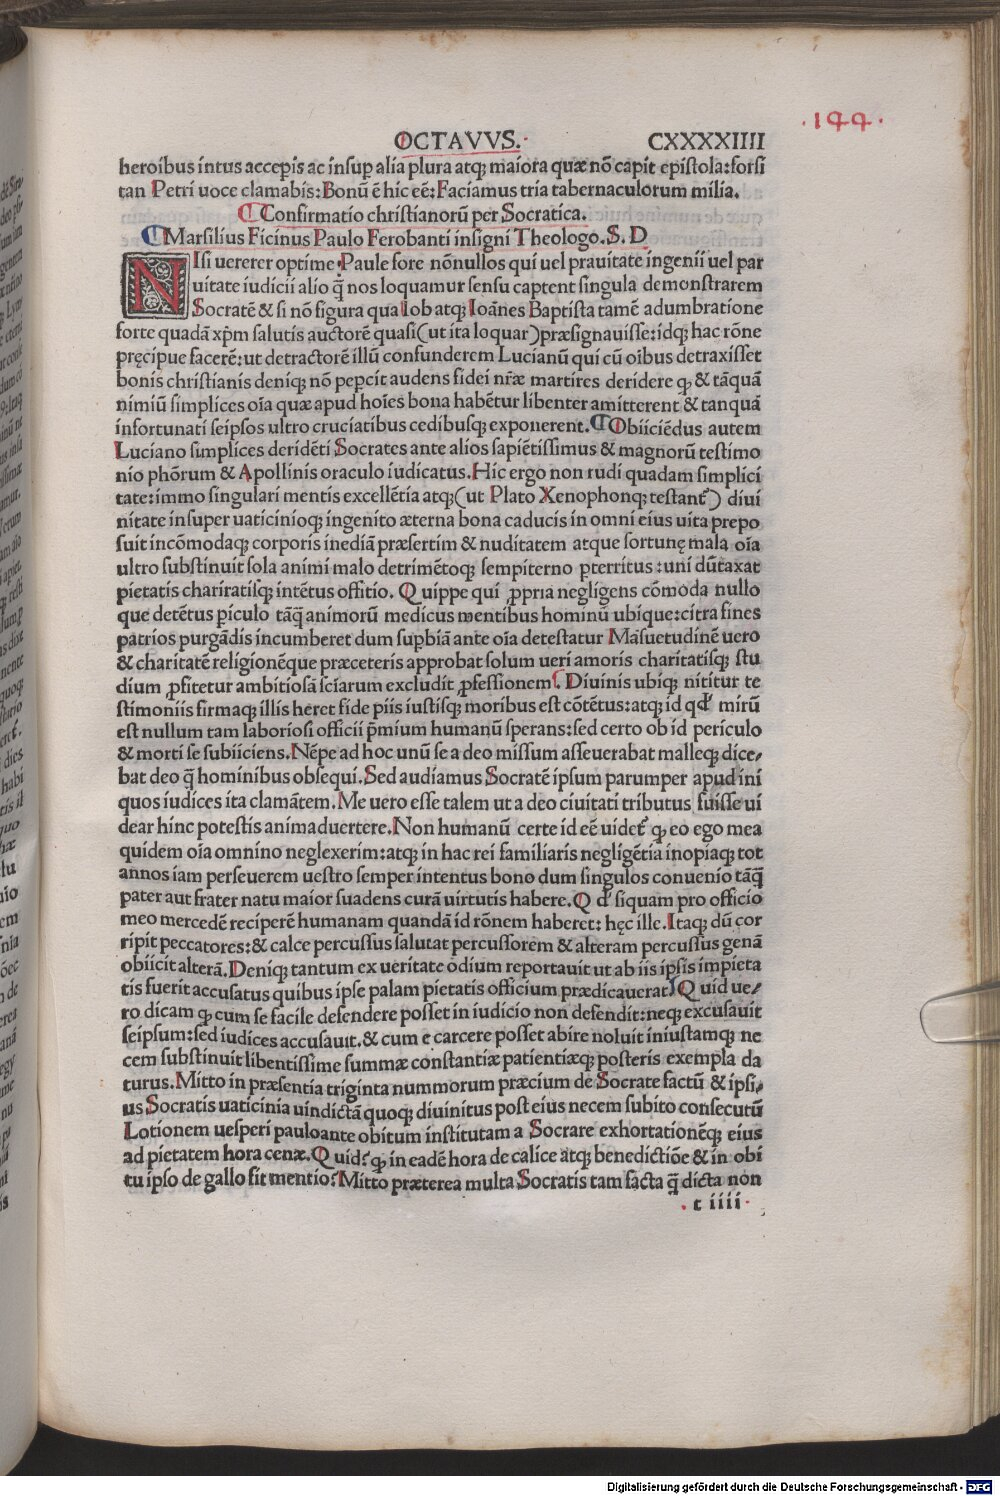 .144.
OCTAVVS. CXXXXIIII
heroibus intus accepis ac insup alia plura atq; maiora quæ nō capit epistola:forsi
tan Petri uoce clamabis:Bonū ē hic eē:Faciamus tria tabernaculorum milia.
¶Confirmatio christianorū per Socratica.
¶Marsilius Ficinus Paulo Ferobanti insigni Theologo.S.D
NIsi uererer optime Paule fore nōnullos qui uel prauitate ingenii uel par
uitate iudicii alio q̄ nos loquamur sensu captent singula demonstrarem
Socratē & si nō figura qua Iob atq; Ioānes Baptista tamē adumbratione
forte quadā xp̄m salutis auctorē quasi(ut ita loquar)præsignauisse:idq; hac rōne
pręcipue facerē:ut detractorē illū confunderem Lucianū qui cū oībus detraxisset
bonis christianis deniq; nō pepcit audens fidei nr̄æ martires deridere q; & tāquā
nimiū simplices oīa quæ apud hoīes bona habētur libenter amitterent & tanquā
infortunati seipsos ultro cruciatibus cedibusq; exponerent.¶Obiiciēdus autem
Luciano simplices deridēti Socrates ante alios sapiētissimus & magnorū testimo
nio phōrum & Apollinis oraculo iudicatus.Hic ergo non rudi quadam simplici
tate:immo singulari mentis excellētia atq;(ut Plato Xenophonq; testant) diui
nitate insuper uaticinioq; ingenito æterna bona caducis in omni eius uita prepo
suit incōmodaq; corporis inediā præsertim & nuditatem atque fortunę mala oīa
ultro substinuit sola animi malo detrimētoq; sempiterno pterritus:uni dūtaxat
pietatis chariratisq; intētus offitio. Quippe qui ppria negligens cōmoda nullo
que detētus piculo tāq̄ animorū medicus mentibus hominū ubique:citra fines
patrios purgādis incumberet dum supbiā ante oīa detestatur Māsuetudinē uero
& charitatē religionēque præceteris approbat solum ueri amoris charitatisq; stu
dium pfitetur ambitiosā sciarum excludit pfessionem. Diuinis ubiq; nititur te
stimoniis firmaq; illis heret fide piis iustisq; moribus est cōtētus:atq; id qd' mirū
est nullum tam laboriosi officii p̄mium humanū sperans:sed certo ob id periculo
& morti se subiiciens.Nēpe ad hoc unū se a deo missum asseuerabat malleq; dice,
bat deo q̄ hominibus obsequi.Sed audiamus Socratē ipsum parumper apud ini
quos iudices ita clamātem.Me uero esse talem ut a deo ciuitati tributus fuisse ui
dear hinc potestis animaduertere.Non humanū certe id eē uidet q; eo ego mea
quidem oīa omnino neglexerim:atq; in hac rei familiaris negligētia inopiaq; tot
annos iam perseuerem uestro semper intentus bono dum singulos conuenio tāq̄
pater aut frater natu maior suadens curā uirtutis habere.Q d' siquam pro officio
meo mercedē reciperē humanam quandā id rōnem haberet: hęc ille.Itaq; dū cor
ripit peccatores:& calce percussus salutat percussorem & alteram percussus genā
obiicit alterā.Deniq; tantum ex ueritate odium reportauit ut ab iis ipsis impieta
tis fuerit accusatus quibus ipse palam pietatis officium prædicauerat?Quid ue,
ro dicam q; cum se facile defendere posset in iudicio non defendit:neq; excusauit
seipsum:sed iudices accusauit.& cum e carcere posset abire noluit iniustamq; ne
cem substinuit libentissime summæ constantiæ patientiæq; posteris exempla da
turus.Mitto in præsentia triginta nummorum præcium de Socrate factū & ipsi,
us Socratis uaticinia uindictā quoq; diuinitus post eius necem subito consecutū
Lotionem uesperi pauloante obitum institutam a Socrare exhortationēq; eius
ad pietatem hora cenæ.Quid? q; in eadē hora de calice atq; benedictiōe & in obi
tu ipso de gallo fit mentio?Mitto præterea multa Socratis tam facta q̄ dicta non
c iiii
Digitalisierung gefördert durch die Deutsche Forschungsgemeinschaft - DFG